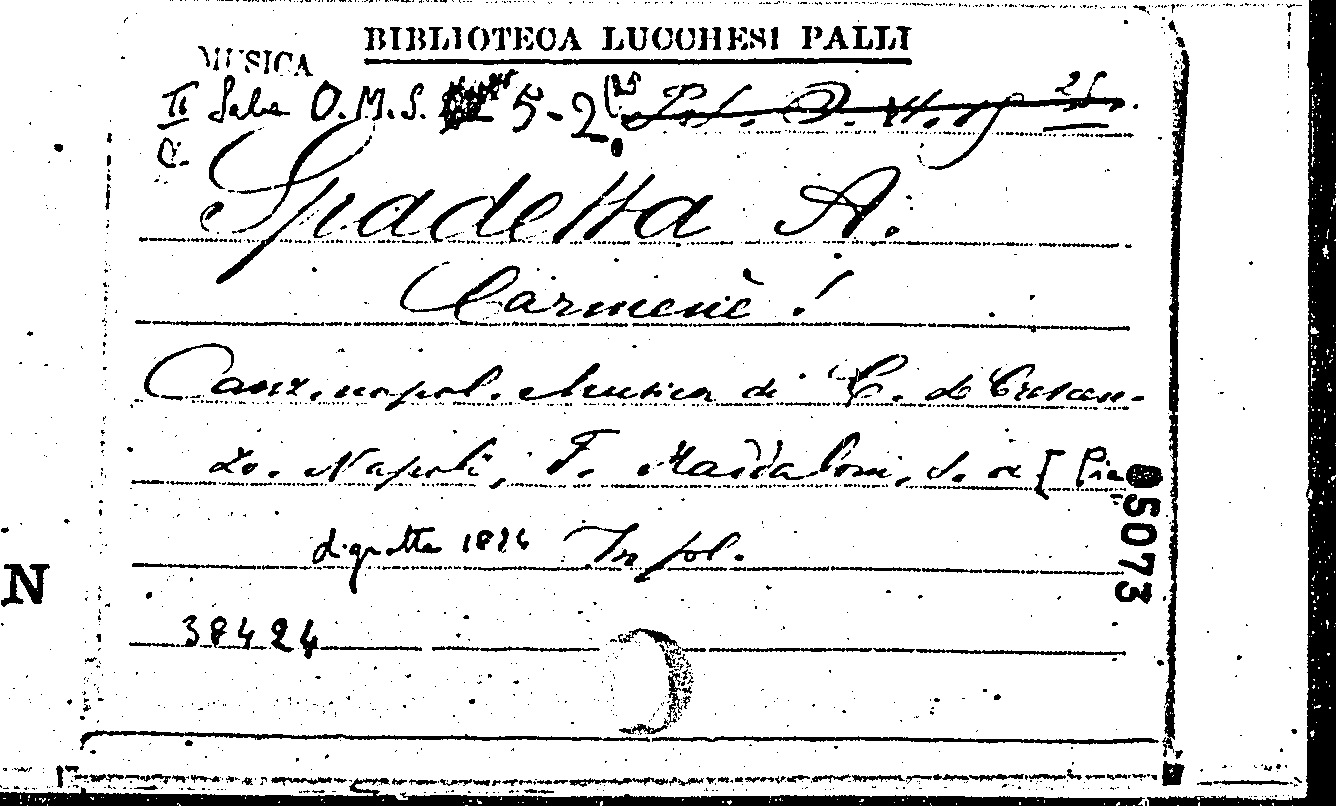 BIBLIOTECA LUCCHESI PALLI
MUSICA
II Sala O.M.S. 5-2
C.
Spadetta A.
Carmenè!
Canz. napol. Musica di C. de Crescen-
zo. Napoli, F. Maddaloni, s. a [Pie
digrotta 1896 In fol.
38424
85073
N